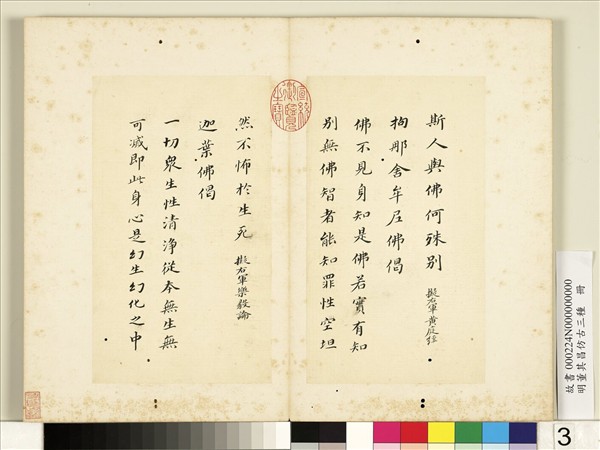 斯人與佛何殊別 擬右軍黃庭經
拘那含牟尼佛偈
佛不見身知是佛若實有知
別無佛智者能知罪性空坦
然不怖於生死 擬右軍樂毅論
迦葉佛偈
一切眾生性清淨從本無生無
可滅即此身心是幻生幻化之中
宣統御覽之寶
故書000224N000000000
明董其昌仿古三種 冊
3